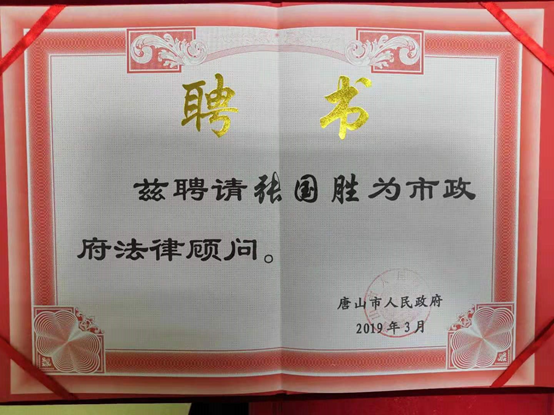 聘 书
兹聘请张国胜为市政
府法律顾问。
唐山市人民政府
2019年3月